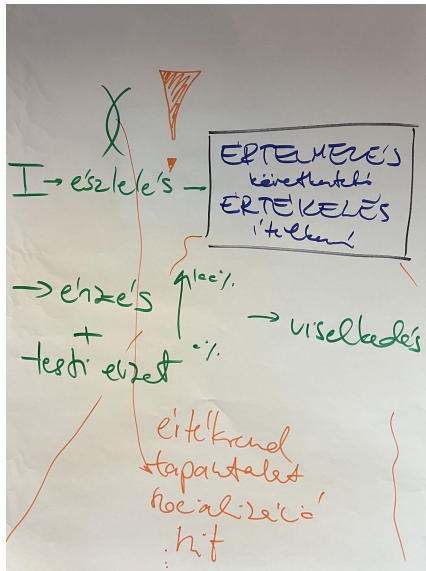 I → észlelés →
ÉRTELMEZÉS
következtető
ÉRTÉKELÉS
ítélkező
→ érzés
+
testi érzet
100%
0%
→ viselkedés
értékrend
tapasztalat
szocializáció
hit